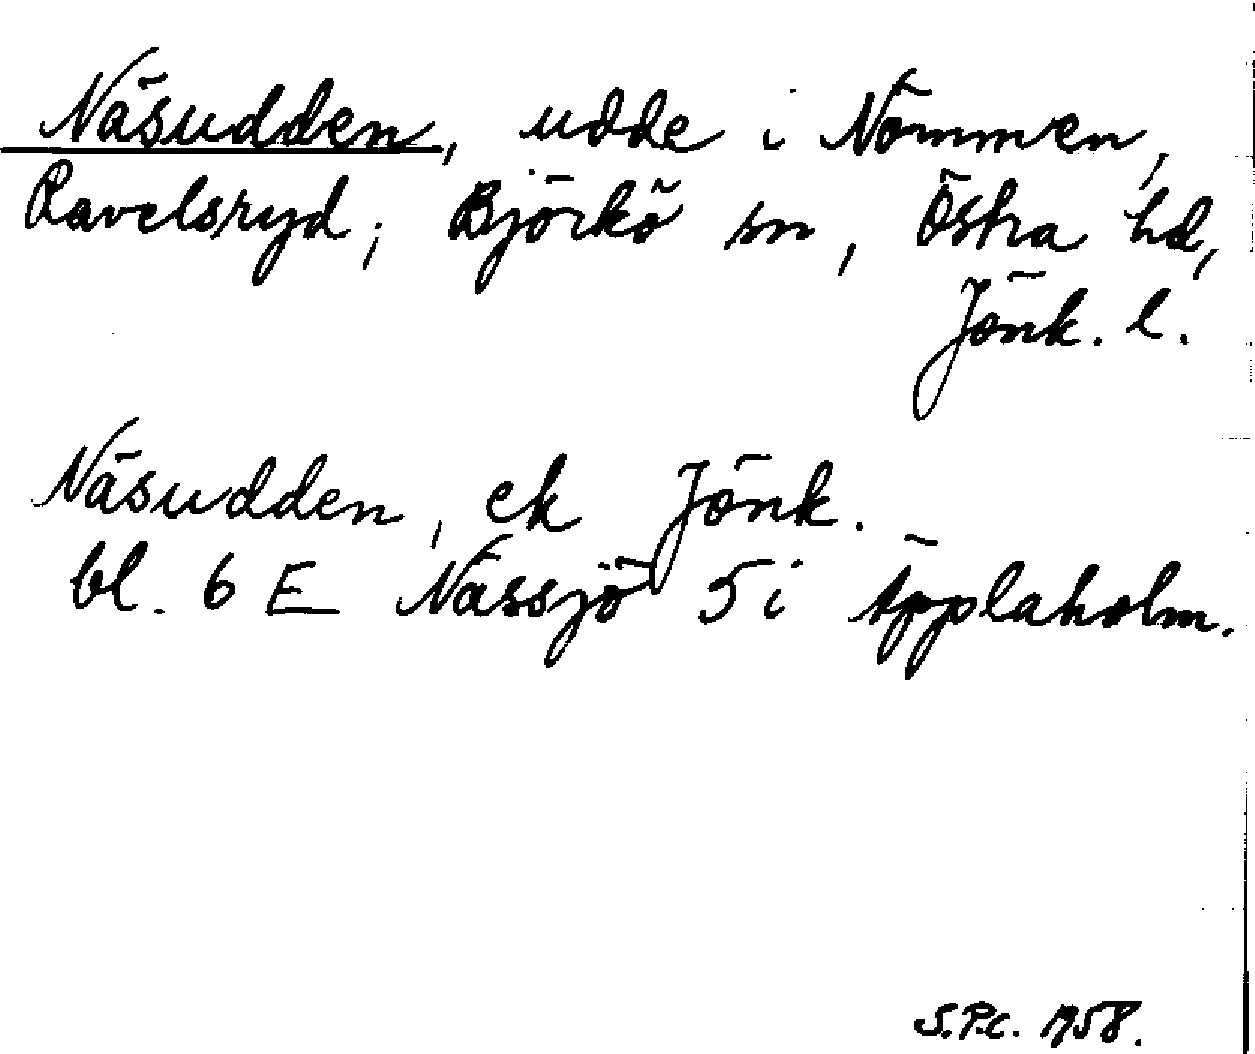 Näsudden, udde i Nömmen,
Ravelsryd, Björkö sn, Östra hd,
Jönk. l.
Näsudden, ek Jönk.
bl. 6 E Nässjö 5 i Äpplaholm.
S.P.C. 1958.